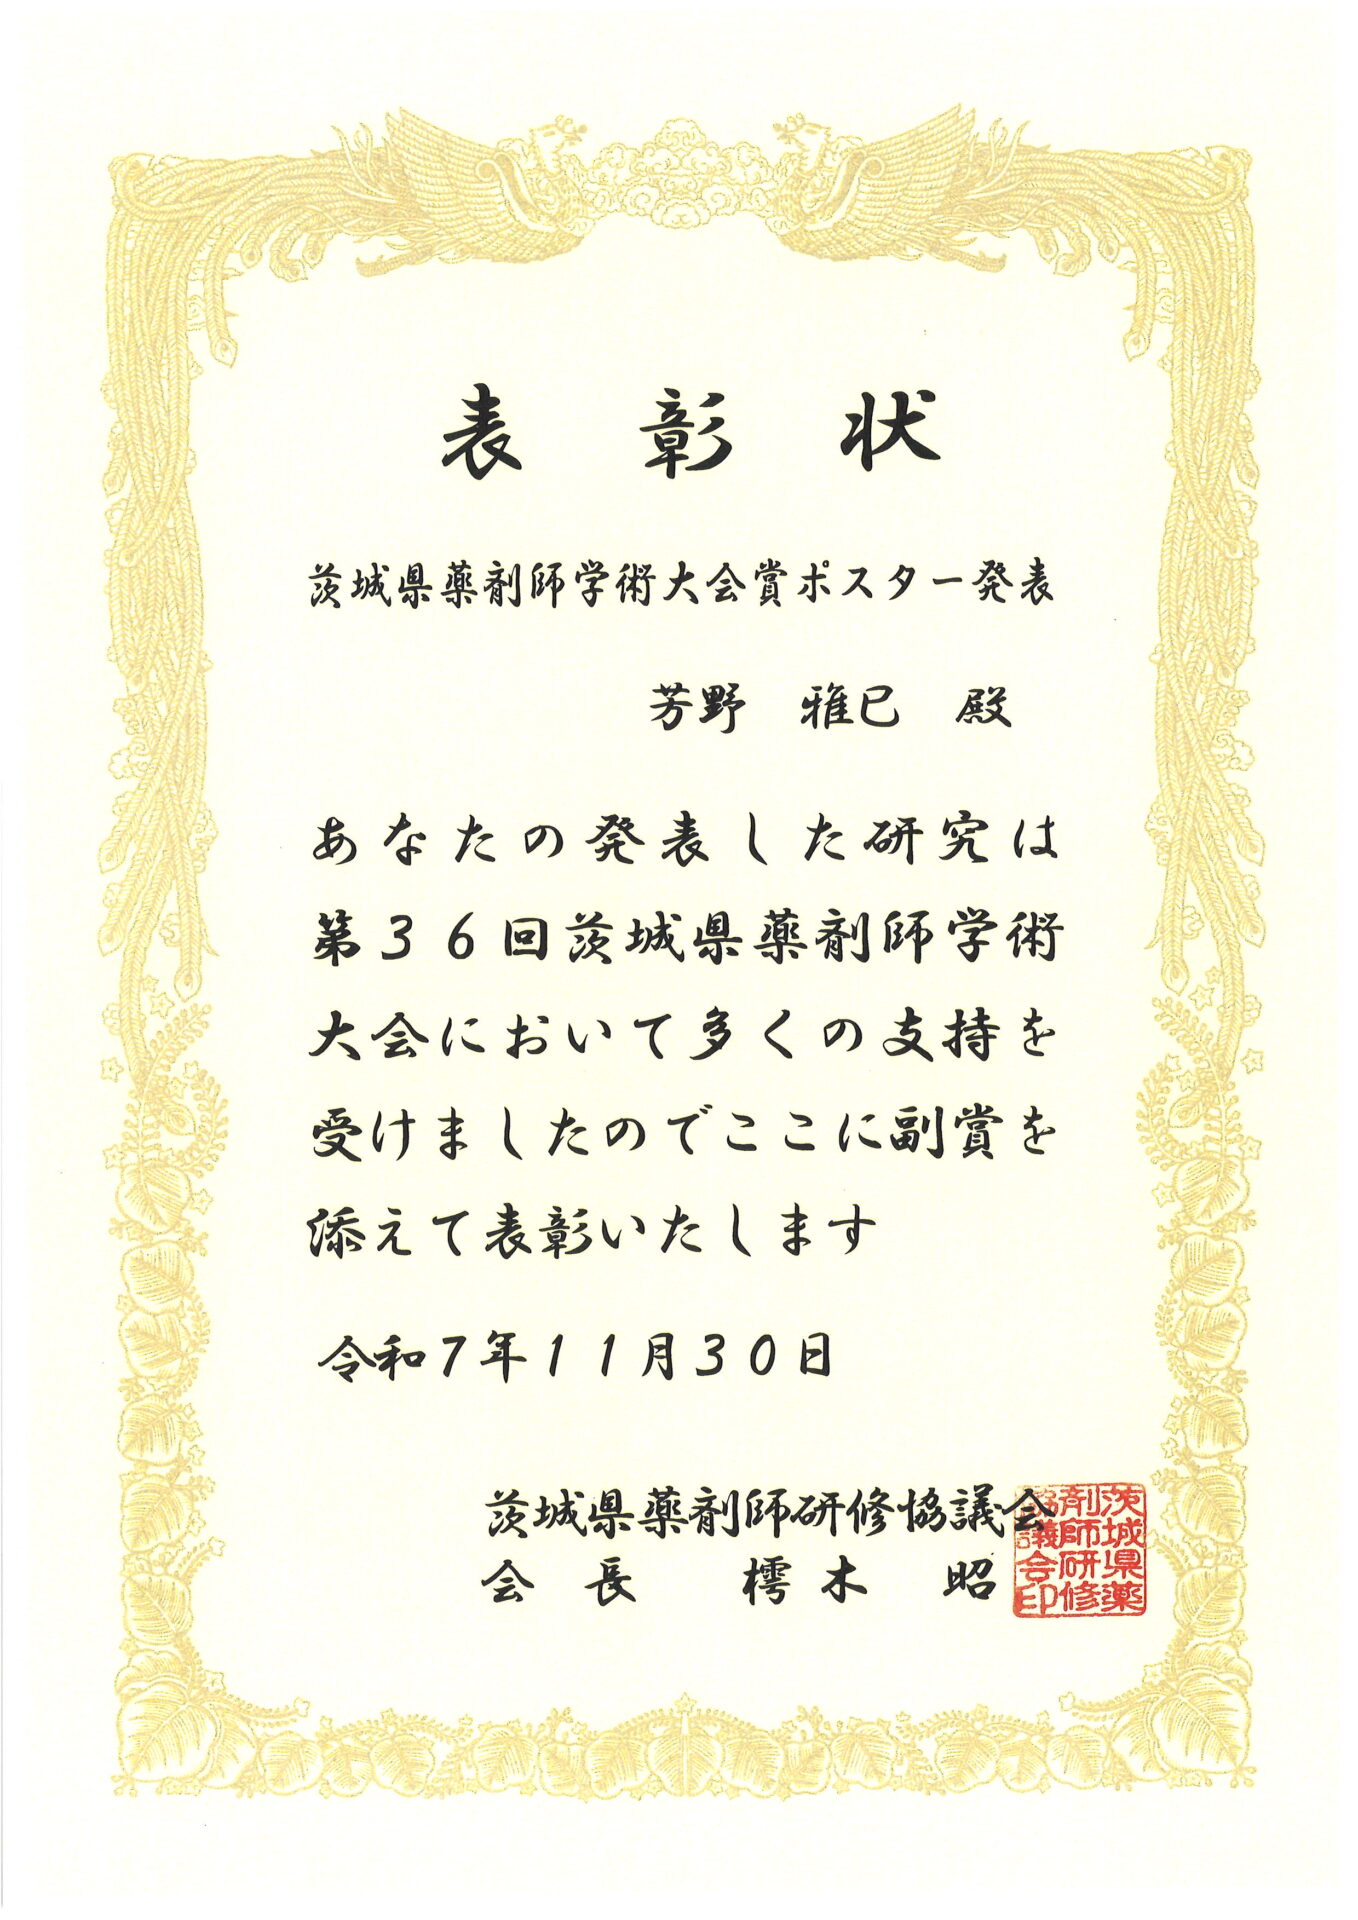 表彰状
茨城県薬剤師学術大会賞ポスター発表
芳野 雅巳 殿
あなたの発表した研究は
第36回茨城県薬剤師学術
大会において多くの支持を
受けましたのでここに副賞を
添えて表彰いたします
令和7年11月30日
茨城県薬剤師研修協議会
会長 樗木 昭
茨城県薬
剤師研修
協議会印